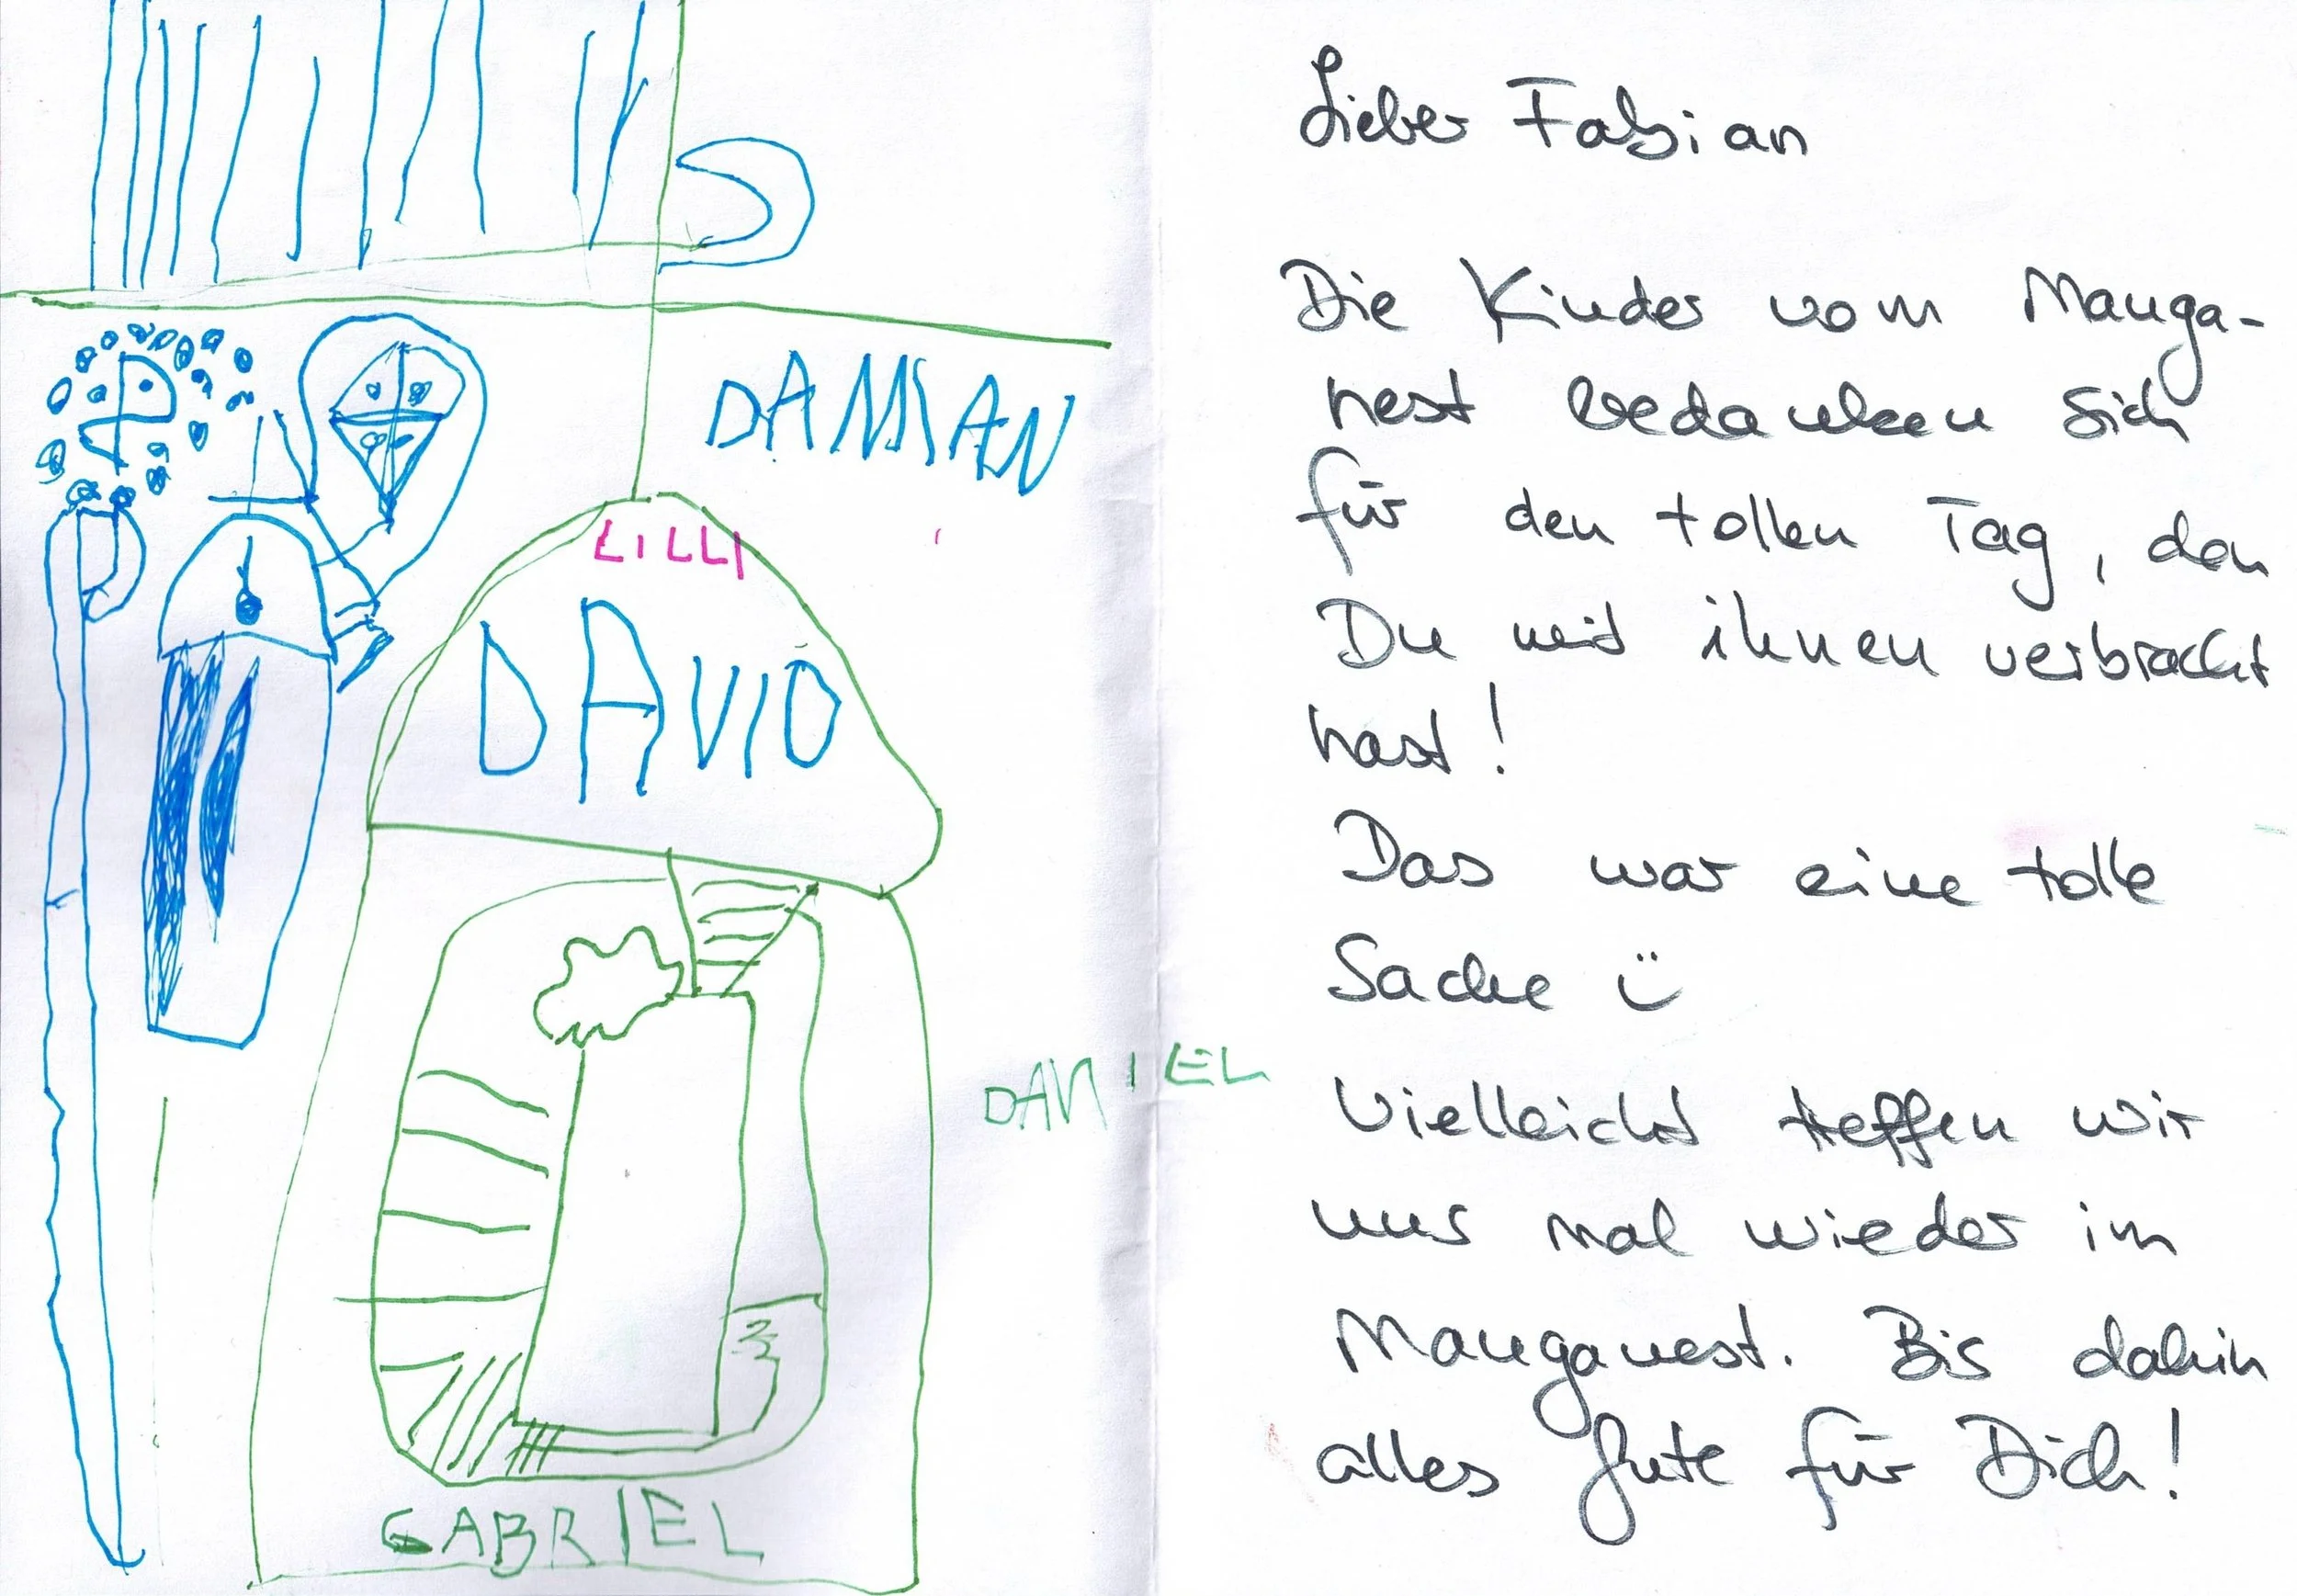 DAMIAN
LILLI
DAVID
DANIEL
GABRIEL
Lieber Fabian
Die Kinder vom Manga-
nest bedanken sich
für den tollen Tag, den
Du mit ihnen verbracht
hast!
Das war eine tolle
Sache ü
Vielleicht treffen wir
uns mal wieder im
Manganest. Bis dahin
alles Gute für Dich!